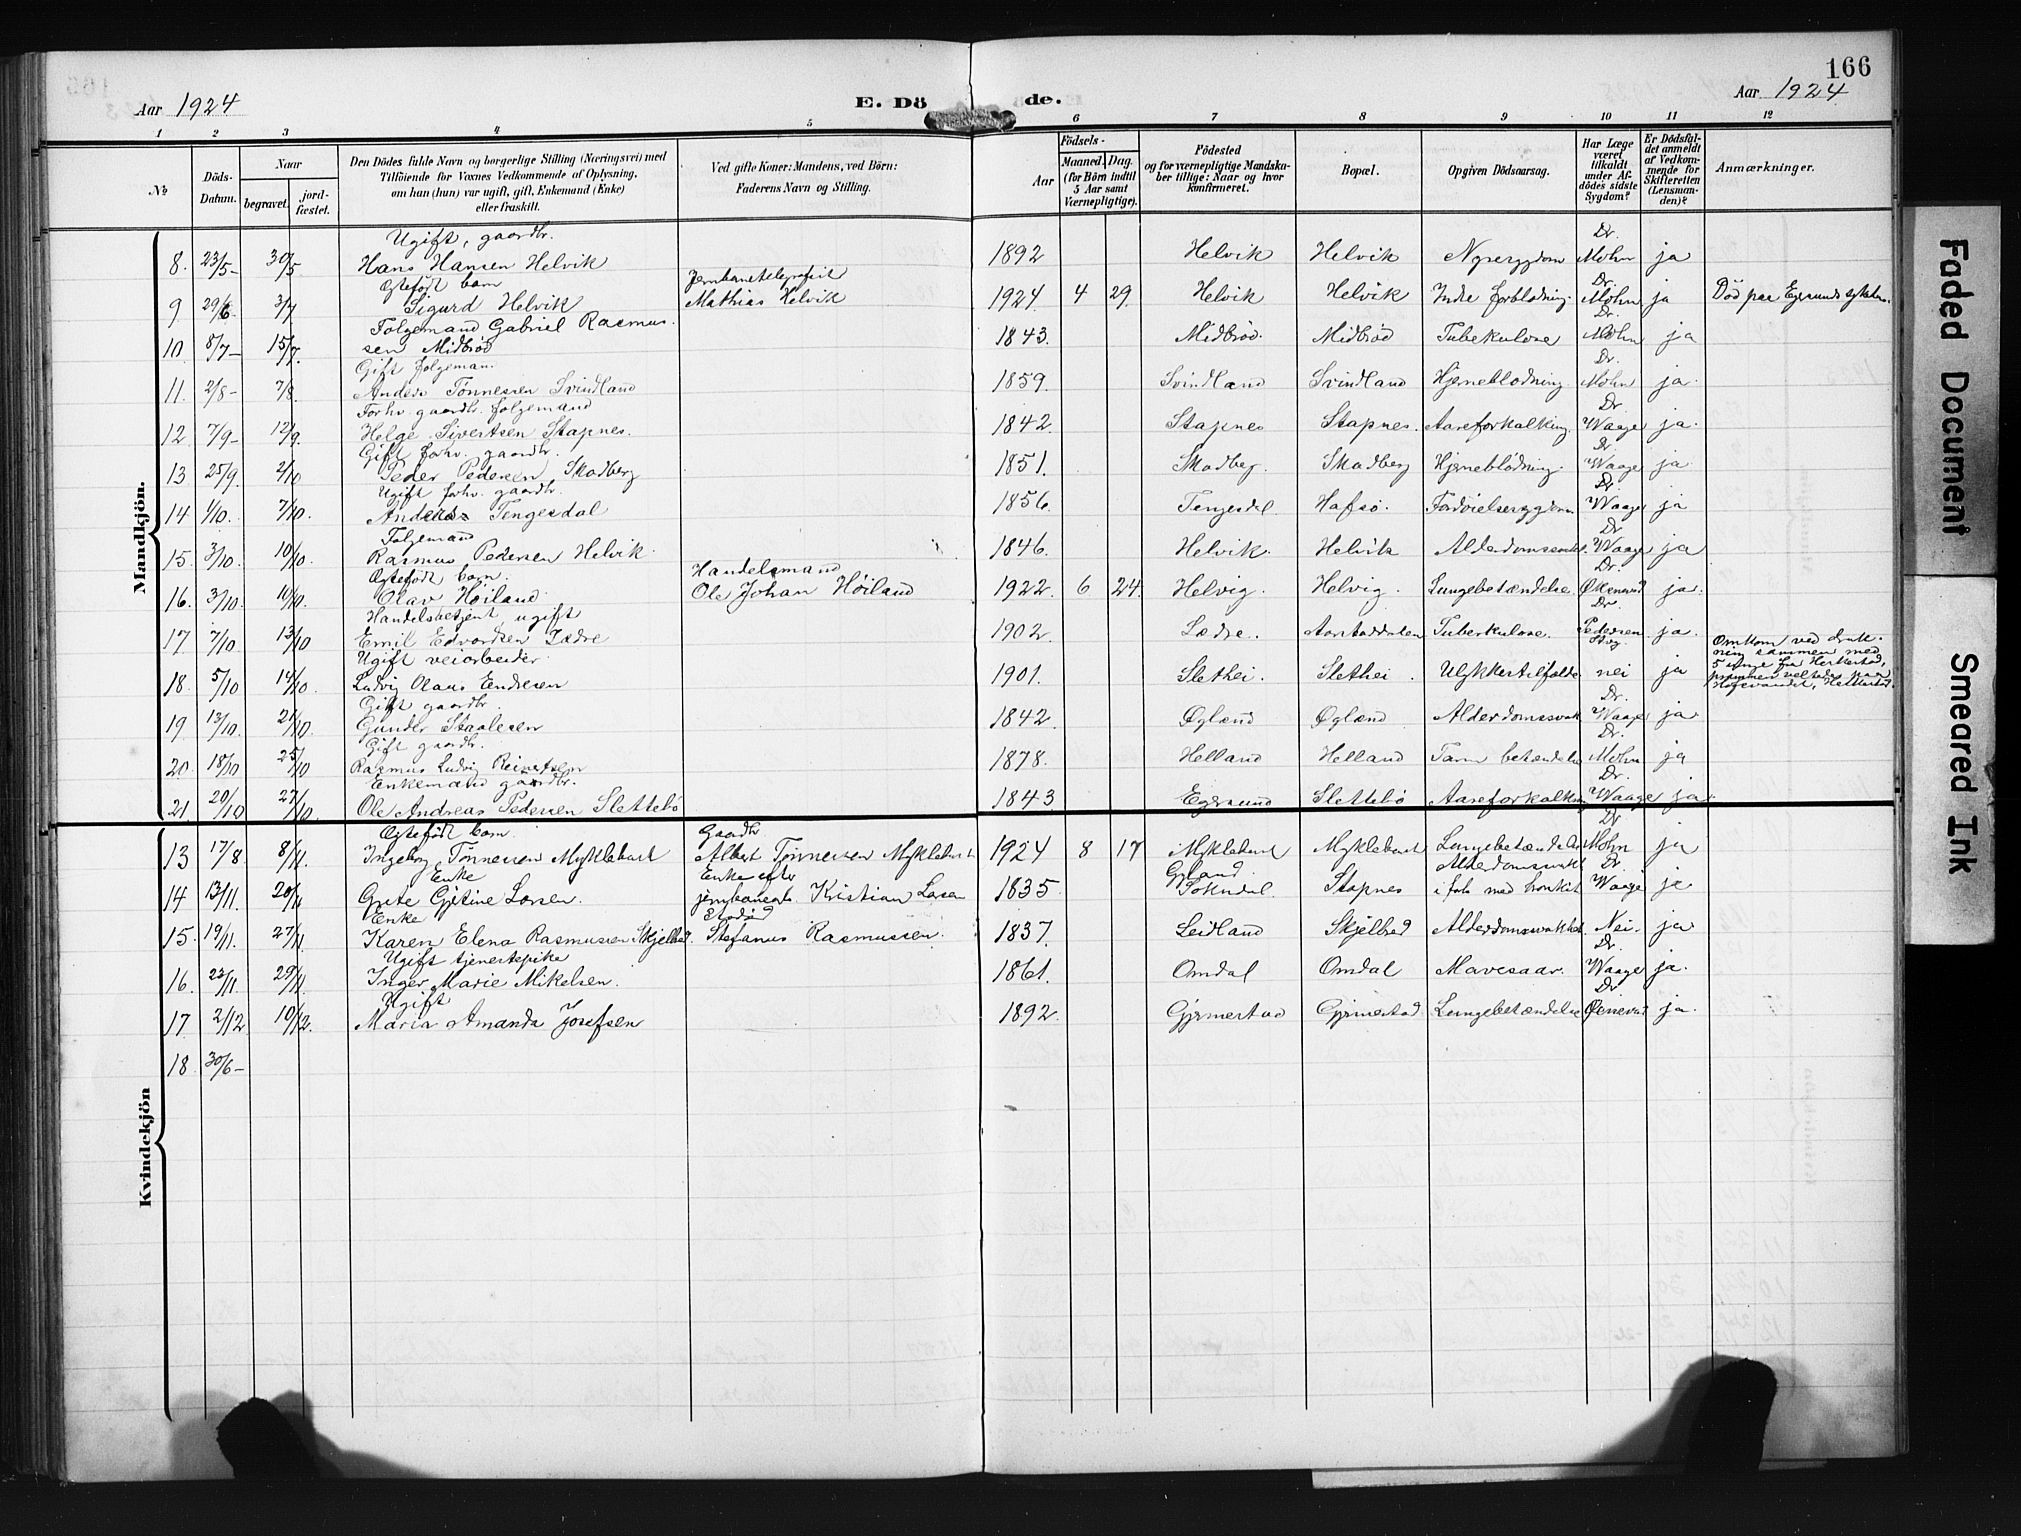 166
Aar 1924
E. Dö
de.
Aar 1924
1 2 3 4 5 6 7 8 9 10 11 12
No
Döds-Datum.
Naar
begravet.
jord-fæstet.
Den Dödes fulde Navn og borgerlige Stilling (Næringsvei) med
Tilföiende for Voxnes Vedkommende af Oplysning,
om han (hun) var ugift, gift, Enkemand (Enke)
eller fraskilt.
Ved gifte Koner: Mandens, ved Börn:
Faderens Navn og Stilling.
Födsels-
Aar
Maaned. Dag.
(for Börn indtil
5 Aar samt
Værnepligtige).
Födested
og for værnepligtige Mandska-
ber tillige: Naar og hvor
konfirmeret.
Bopæl.
Opgiven Dödsaarsag.
Har Læge
været
tilkaldt
under Af-
dödes sidste
Sygdom?
Er Dödsfal-
det anmeldt
af Vedkom-
mende for
Skifteretten
(Lensman-
den)?
Anmærkninger.
Mandkjön.
Ugift, gaardbr. Dr.
8. 23/5- 30/5 Hans Hansen Helvik 1892 Helvik Helvik Nyresygdom Mohn ja
Ogtefödt barn Jernbanetelegrafist Dr.
9 29/6 3/7 Sigurd Helvik Mathias Helvik 1924. 4 29. Helvik Helvik Indre forblödning. Mohn ja Död paa Egersunds sykehus.
Folgemand Gabriel Rasmus- Dr.
10. 8/7- 15/7. sen Midbröd 1843. Midbröd. Midbröd Tuberkulose Mohn ja
Gift folgeman. Dr.
11. 2/8- 7/8. Anders Tönnessen Svindland 1859. Svindland Svindland Hjerneblödning. Mohn ja.
Forhv. gaardbr. folgemand Dr.
12. 7/9- 12/9. Helge Sivertsen Stapnes. 1842. Stapnes Stapnes. Aareforkalkning. Waage ja.
Gift forhv. gaardbr. Dr.
13 25/9. 2/10 Peder Pedersen Skadberg 1851. Skadberg. Skadberg Hjerneblödning. Waage ja.
Ugift forhv. gaardbr. Dr.
14 1/10. 7/10. Anders Tengesdal 1856. Tengesdal Hafsö. Fordöielsessygdom Waage ja
Folgemand Dr.
15. 3/10. 10/10. Rasmus Pedersen Helvik. 1846. Helvik. Helvik Alderdomssvakh. Waage ja
Ogtefödt barn. Handelsmand Dr.
16. 3/10. 10/10. Olav Höiland. Ole Johan Höiland 1922. 6 24. Helvig. Helvig. Lungebetændelse. ja.
Handelsbetjent, ugift Dr.
17 7/10 13/10 Emil Edvardsen Jædre 1902. Aarstaddalen Tuberkulose. Pedersen ja.
Ugift veiarbeider.
18. 5/10 14/10. Ludvig Olaus Endresen 1901. Slethei. Slethei. Ulykkestilfælde nei ja Omkom ved druk-
ning sammen med
5 unge fra
prammen veltede paa
Gift gaardbr. Dr.
19. 13/10. 21/10. Gunder Staalesen 1842. Ögland Ögland. Alderdomssvak Waage ja
Gift gaardbr. Dr.
20. 18/10 25/10 Rasmus Ludvig Reinertsen 1878. Helland Helland Tarmbetændelse Mohn ja
Enkemand gaardbr. Dr.
21 20/10 27/10. Ole Andreas Pedersen Slettebö 1843 Egersund Slettebö Aareforkalkn Waage ja.
Kvindekjön
Ogtefödt barn. Gaardbr Dr
13 17/8. 8/11. Ingeborg Tönnessen Myklebust Albert Tönnessen Myklebust 1924 8 17 Myklebust Myklebust Lungebetændelse Mohn ja
Enke Enke efter Alderdomssvakh Dr
14 13/11. 20/11 Grete Gjetine Larsen. jernbanearb. Kristian Larsen 1835. Sokndal Stapnes i forb. med bronkit Waage ja
Enke
15. 19/11. 27/11. Karen Elena Rasmussen Skjelbred. Stefanus Rasmussen. 1837. Leidland Skjelbred Alderdomssvakhet Nei. ja
Ugift tjenestepike Dr.
16. 23/11. 29/11. Inger Marie Mikelsen. 1861. Omdal Omdal Mavesaar. Waage ja.
Ugift Dr
17. 2/12 10/12. Maria Amanda Josefsen 1892. Gjermestad Gjermestad Lungebetændelse ja.
18 30/6-
Faded Document
Smeared Ink